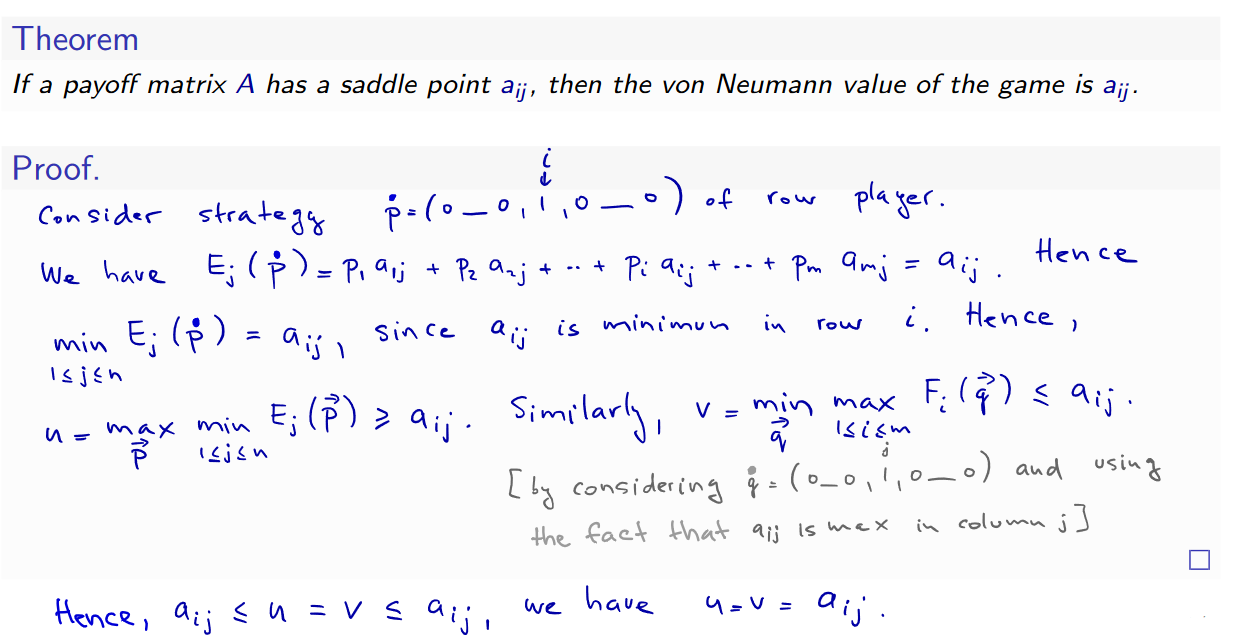 Theorem
If a payoff matrix A has a saddle point a_ij, then the von Neumann value of the game is a_ij.
Proof.
i
↓
Consider strategy ṗ = (0 — 0, 1, 0 — 0) of row player.
We have E_j(ṗ) = p_1 a_1j + p_2 a_2j + ... + p_i a_ij + ... + p_m a_mj = a_ij. Hence
min E_j(ṗ) = a_ij, since a_ij is minimum in row i. Hence,
1≤j≤n
u = max min E_j(p⃗) ≥ a_ij. Similarly, v = min max F_i(q⃗) ≤ a_ij.
p⃗ 1≤j≤n q⃗ 1≤i≤m
j
[by considering q̇ = (0 — 0, 1, 0 — 0) and using
the fact that a_ij is max in column j]
Hence, a_ij ≤ u = v ≤ a_ij, we have u = v = a_ij.